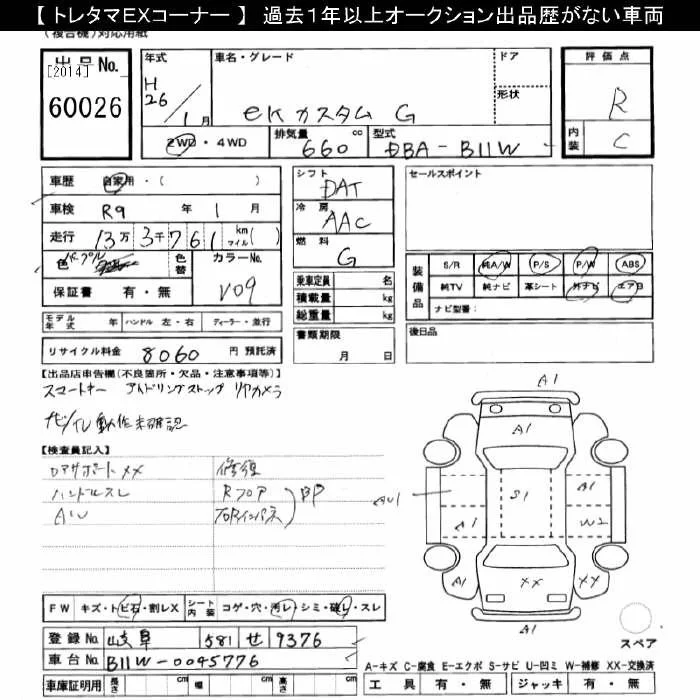 【 トレタマEXコーナー 】 過去1年以上オークション出品歴がない車両
(複合機)対応用紙
出品No. [2014] 60026
年式 H26/1月
車名・グレード eKカスタム G
ドア
形状
評価点 R
内装 C
2WD・4WD
排気量 660 cc
型式 DBA-B11W
車歴 自家用・( )
車検 R9 年 1 月
走行 13万3千761 km マイル( )
色 パープル 色替 カラーNo. V09
保証書 有・無
モデル年式 年 ハンドル 左・右 ディーラー・並行
リサイクル料金 8060 円 預託済
シフト DAT
冷房 AAC
燃料 G
乗車定員 名
積載量 kg
総重量 kg
書類期限 月 日
セールスポイント
装備品 S/R 純A/W P/S P/W ABS
純TV 純ナビ 革シート 外ナビ エアB
ナビ型番:
後日品
【出品店申告欄(不良箇所・欠品・注意事項等)】
スマートキー アイドリングストップ リヤカメラ
ナビ/TV動作未確認
【検査員記入】
コアサポートXX 修復
ハンドルスレ Rフロア
AW
A1
A1
AU1 S1 A1
A1 W2
A1 XX XY
A1
FW キズ・トビ石・割レX シート内装 コゲ・穴・汚レ・シミ・破レ・スレ
登録No. 岐阜 581 せ 9376
車台No. B11W-0045776
車庫証明用 長さ cm 幅 cm 高さ cm
スペア
A-キズ C-腐食 E-エクボ S-サビ U-凹ミ W-補修 XX-交換済
工具 有・無 ジャッキ 有・無